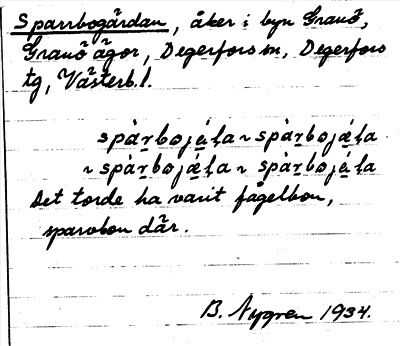 Sparrbogärdan, åker i byn Granö,
Granö ägor, Degerfors sn, Degerfors
tg, Västerb.l.
spàr̲bojá̲ḷa ~ spàr̲bojǽ̲ḷa
~ spàr̲bojǽ̲ḷa ~ spàr̲bojá̲ḷa
Det torde ha varit fågelbon,
sparvbon där.
B. Nygren 1934.